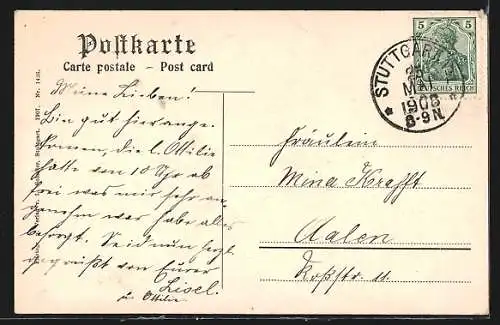 Postkarte
Carte postale – Post card
5 5
DEUTSCHES REICH
STUTTGART
MAI
1908
8-9N.
Meine Lieben!
Bin gut hier ange-
kommen, die l. Ottilie
hatte von 10 Uhr ab
frei was mir sehr an-
genehm war habe alles
besorgt. Seid nun herzl.
gegrüßt von Eurer
Lisel.
u. Ottilie
Fräulein
Mina Krafft
Aalen
Roßstr. 11
Stuttgart. 1907.